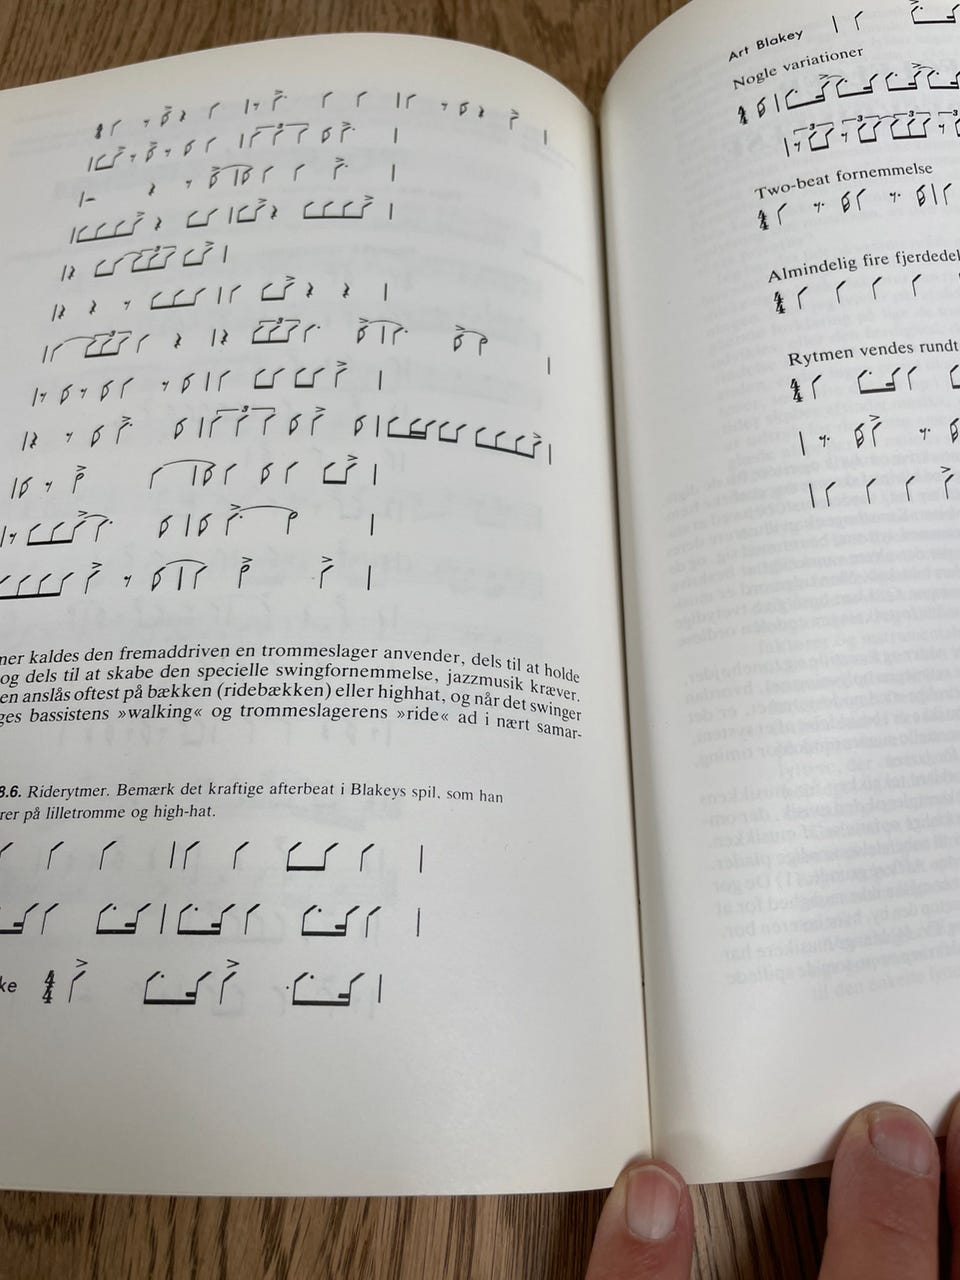 kaldes den fremaddriven en trommeslager anvender, dels til at holde
og dels til at skabe den specielle swingfornemmelse, jazzmusik kræver.
anslås oftest på bækken (ridebækken) eller highhat, og når det swinger
bassistens »walking« og trommeslagerens »ride« ad i nært samar-
8.6. Riderytmer. Bemærk det kraftige afterbeat i Blakeys spil, som han
på lilletromme og high-hat.
4/4
Art Blakey
Nogle variationer
4/4
Two-beat fornemmelse
4/4
Almindelig fire
4/4
Rytmen vendes rundt
4/4